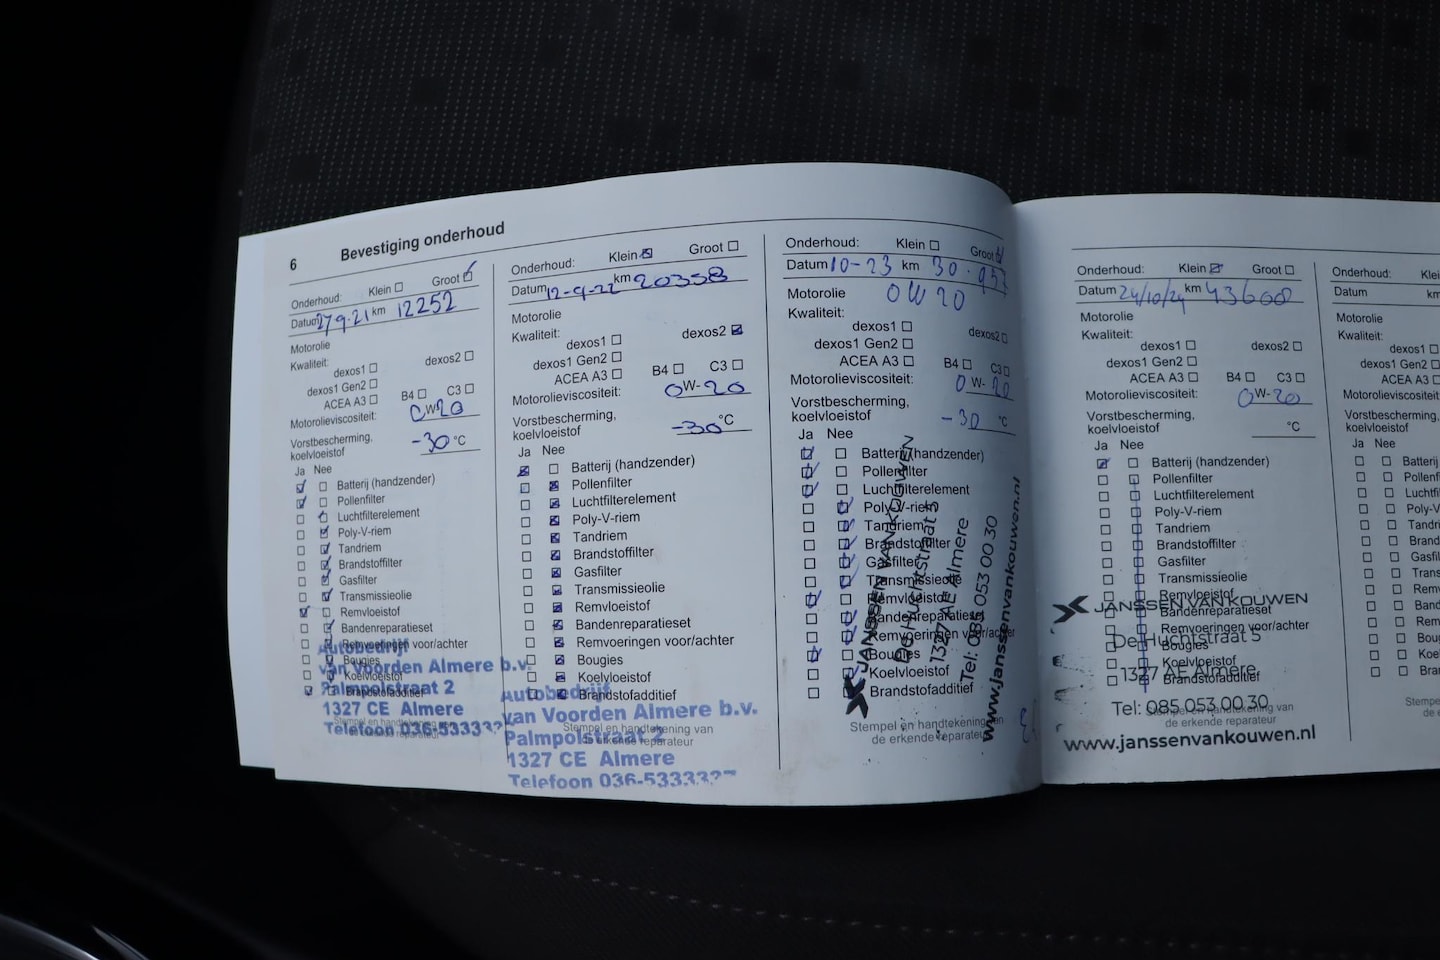 6 Bevestiging onderhoud
Onderhoud: Klein Groot
Datum 27-9-21 km 12252
Motorolie
Kwaliteit:
dexos1 dexos2
dexos1 Gen2
ACEA A3 B4 C3
Motorolieviscositeit: 0W20
Vorstbescherming,
koelvloeistof -30 °C
Ja Nee
Batterij (handzender)
Pollenfilter
Luchtfilterelement
Poly-V-riem
Tandriem
Brandstoffilter
Gasfilter
Transmissieolie
Remvloeistof
Bandenreparatieset
Remvoeringen voor/achter
Bougies
Koelvloeistof
Brandstofadditief
Autobedrijf
van Voorden Almere b.v.
Palmpolstraat 2
1327 CE Almere
Telefoon 036-53333
Stempel en handtekening
Onderhoud: Klein Groot
Datum 12-9-22 km 20358
Motorolie
Kwaliteit:
dexos1 dexos2
dexos1 Gen2
ACEA A3 B4 C3
Motorolieviscositeit: 0W-20
Vorstbescherming,
koelvloeistof -30 °C
Ja Nee
Batterij (handzender)
Pollenfilter
Luchtfilterelement
Poly-V-riem
Tandriem
Brandstoffilter
Gasfilter
Transmissieolie
Remvloeistof
Bandenreparatieset
Remvoeringen voor/achter
Bougies
Koelvloeistof
Brandstofadditief
Autobedrijf
van Voorden Almere b.v.
Palmpolstraat 2
1327 CE Almere
Telefoon 036-53333
Stempel en handtekening van
de erkende reparateur
Onderhoud: Klein Groot
Datum 10-23 km 30.952
Motorolie 0W20
Kwaliteit:
dexos1 dexos2
dexos1 Gen2
ACEA A3 B4 C3
Motorolieviscositeit: 0W-20
Vorstbescherming,
koelvloeistof -30 °C
Ja Nee
Batterij (handzender)
Pollenfilter
Luchtfilterelement
Poly-V-riem
Tandriem
Brandstoffilter
Gasfilter
Transmissieolie
Remvloeistof
Bandenreparatieset
Remvoeringen voor/achter
Bougies
Koelvloeistof
Brandstofadditief
JANSSEN VAN KOUWEN
De Huchtstraat 5
1327 AE Almere
Tel: 085 053 00 30
www.janssenvankouwen.nl
Stempel en handtekening van
de erkende reparateur
Onderhoud: Klein Groot
Datum 24/10/24 km 43600
Motorolie
Kwaliteit:
dexos1 dexos2
dexos1 Gen2
ACEA A3 B4 C3
Motorolieviscositeit: 0W-20
Vorstbescherming,
koelvloeistof °C
Ja Nee
Batterij (handzender)
Pollenfilter
Luchtfilterelement
Poly-V-riem
Tandriem
Brandstoffilter
Gasfilter
Transmissieolie
Remvloeistof
Bandenreparatieset
Remvoeringen voor/achter
Bougies
Koelvloeistof
Brandstofadditief
JANSSEN VAN KOUWEN
De Huchtstraat 5
1327 AE Almere
Tel: 085 053 00 30
www.janssenvankouwen.nl
Stempel en handtekening van
de erkende reparateur
Onderhoud: Klei
Datum km
Motorolie
Kwaliteit:
dexos1
dexos1 Gen2
ACEA A3
Motorolieviscositeit:
Vorstbescherming,
koelvloeistof
Ja Nee
Batterij
Pollenf
Luchtf
Poly-V
Tandri
Brands
Gasfil
Trans
Remv
Band
Rem
Bou
Koe
Bra